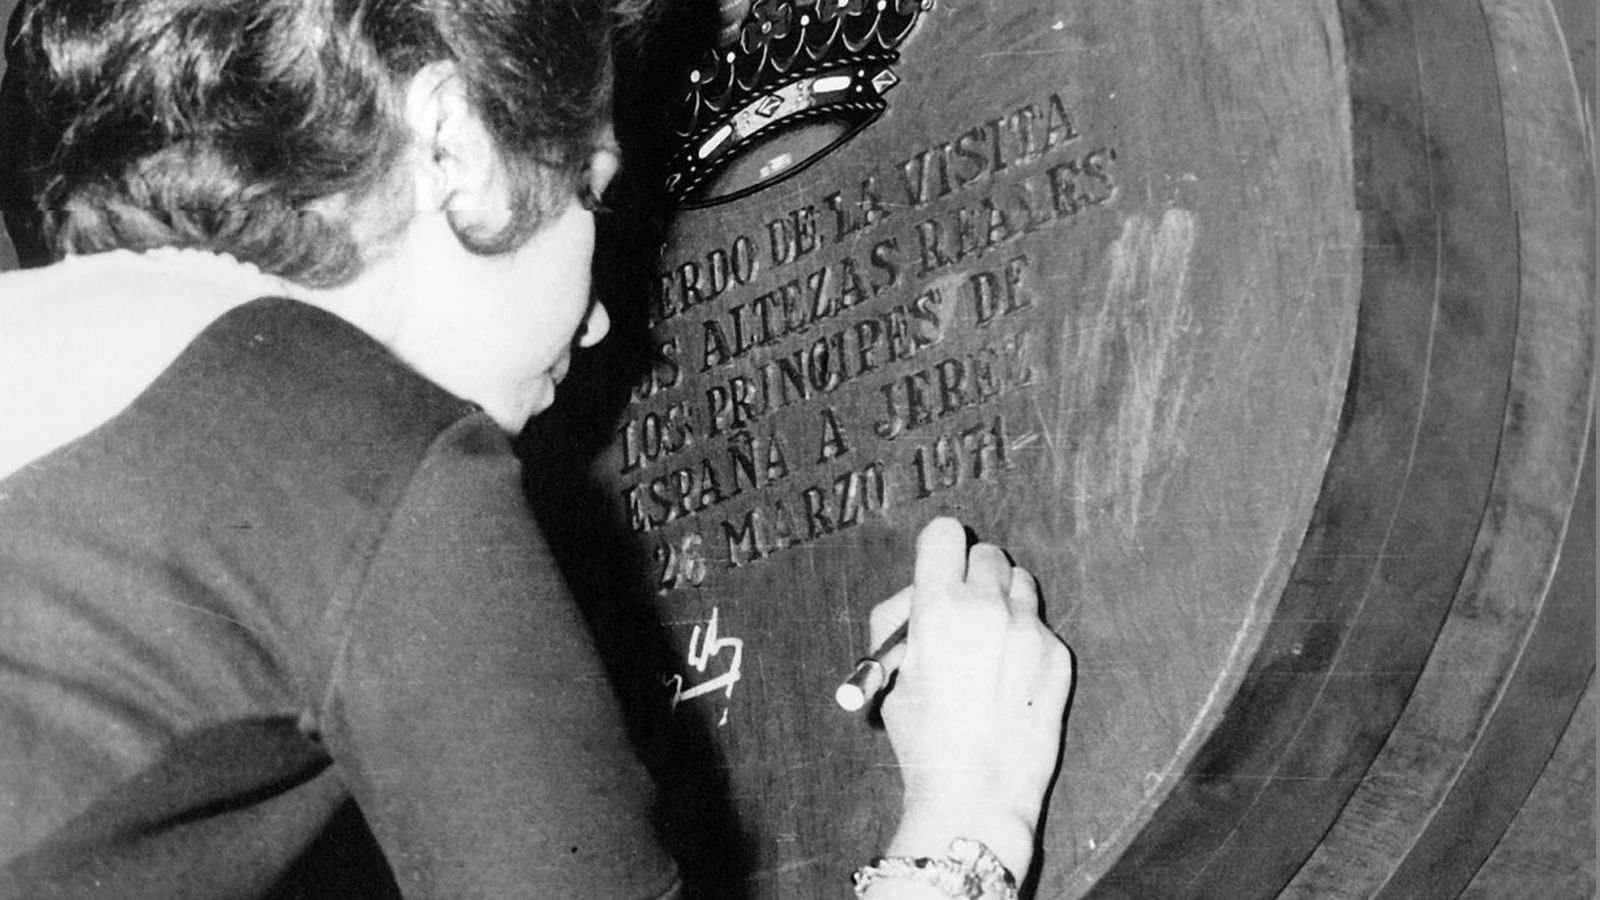 ERDO DE LA VISITA
S ALTEZAS REALES
LOS PRINCIPES DE
ESPAÑA A JEREZ
26 MARZO 1971